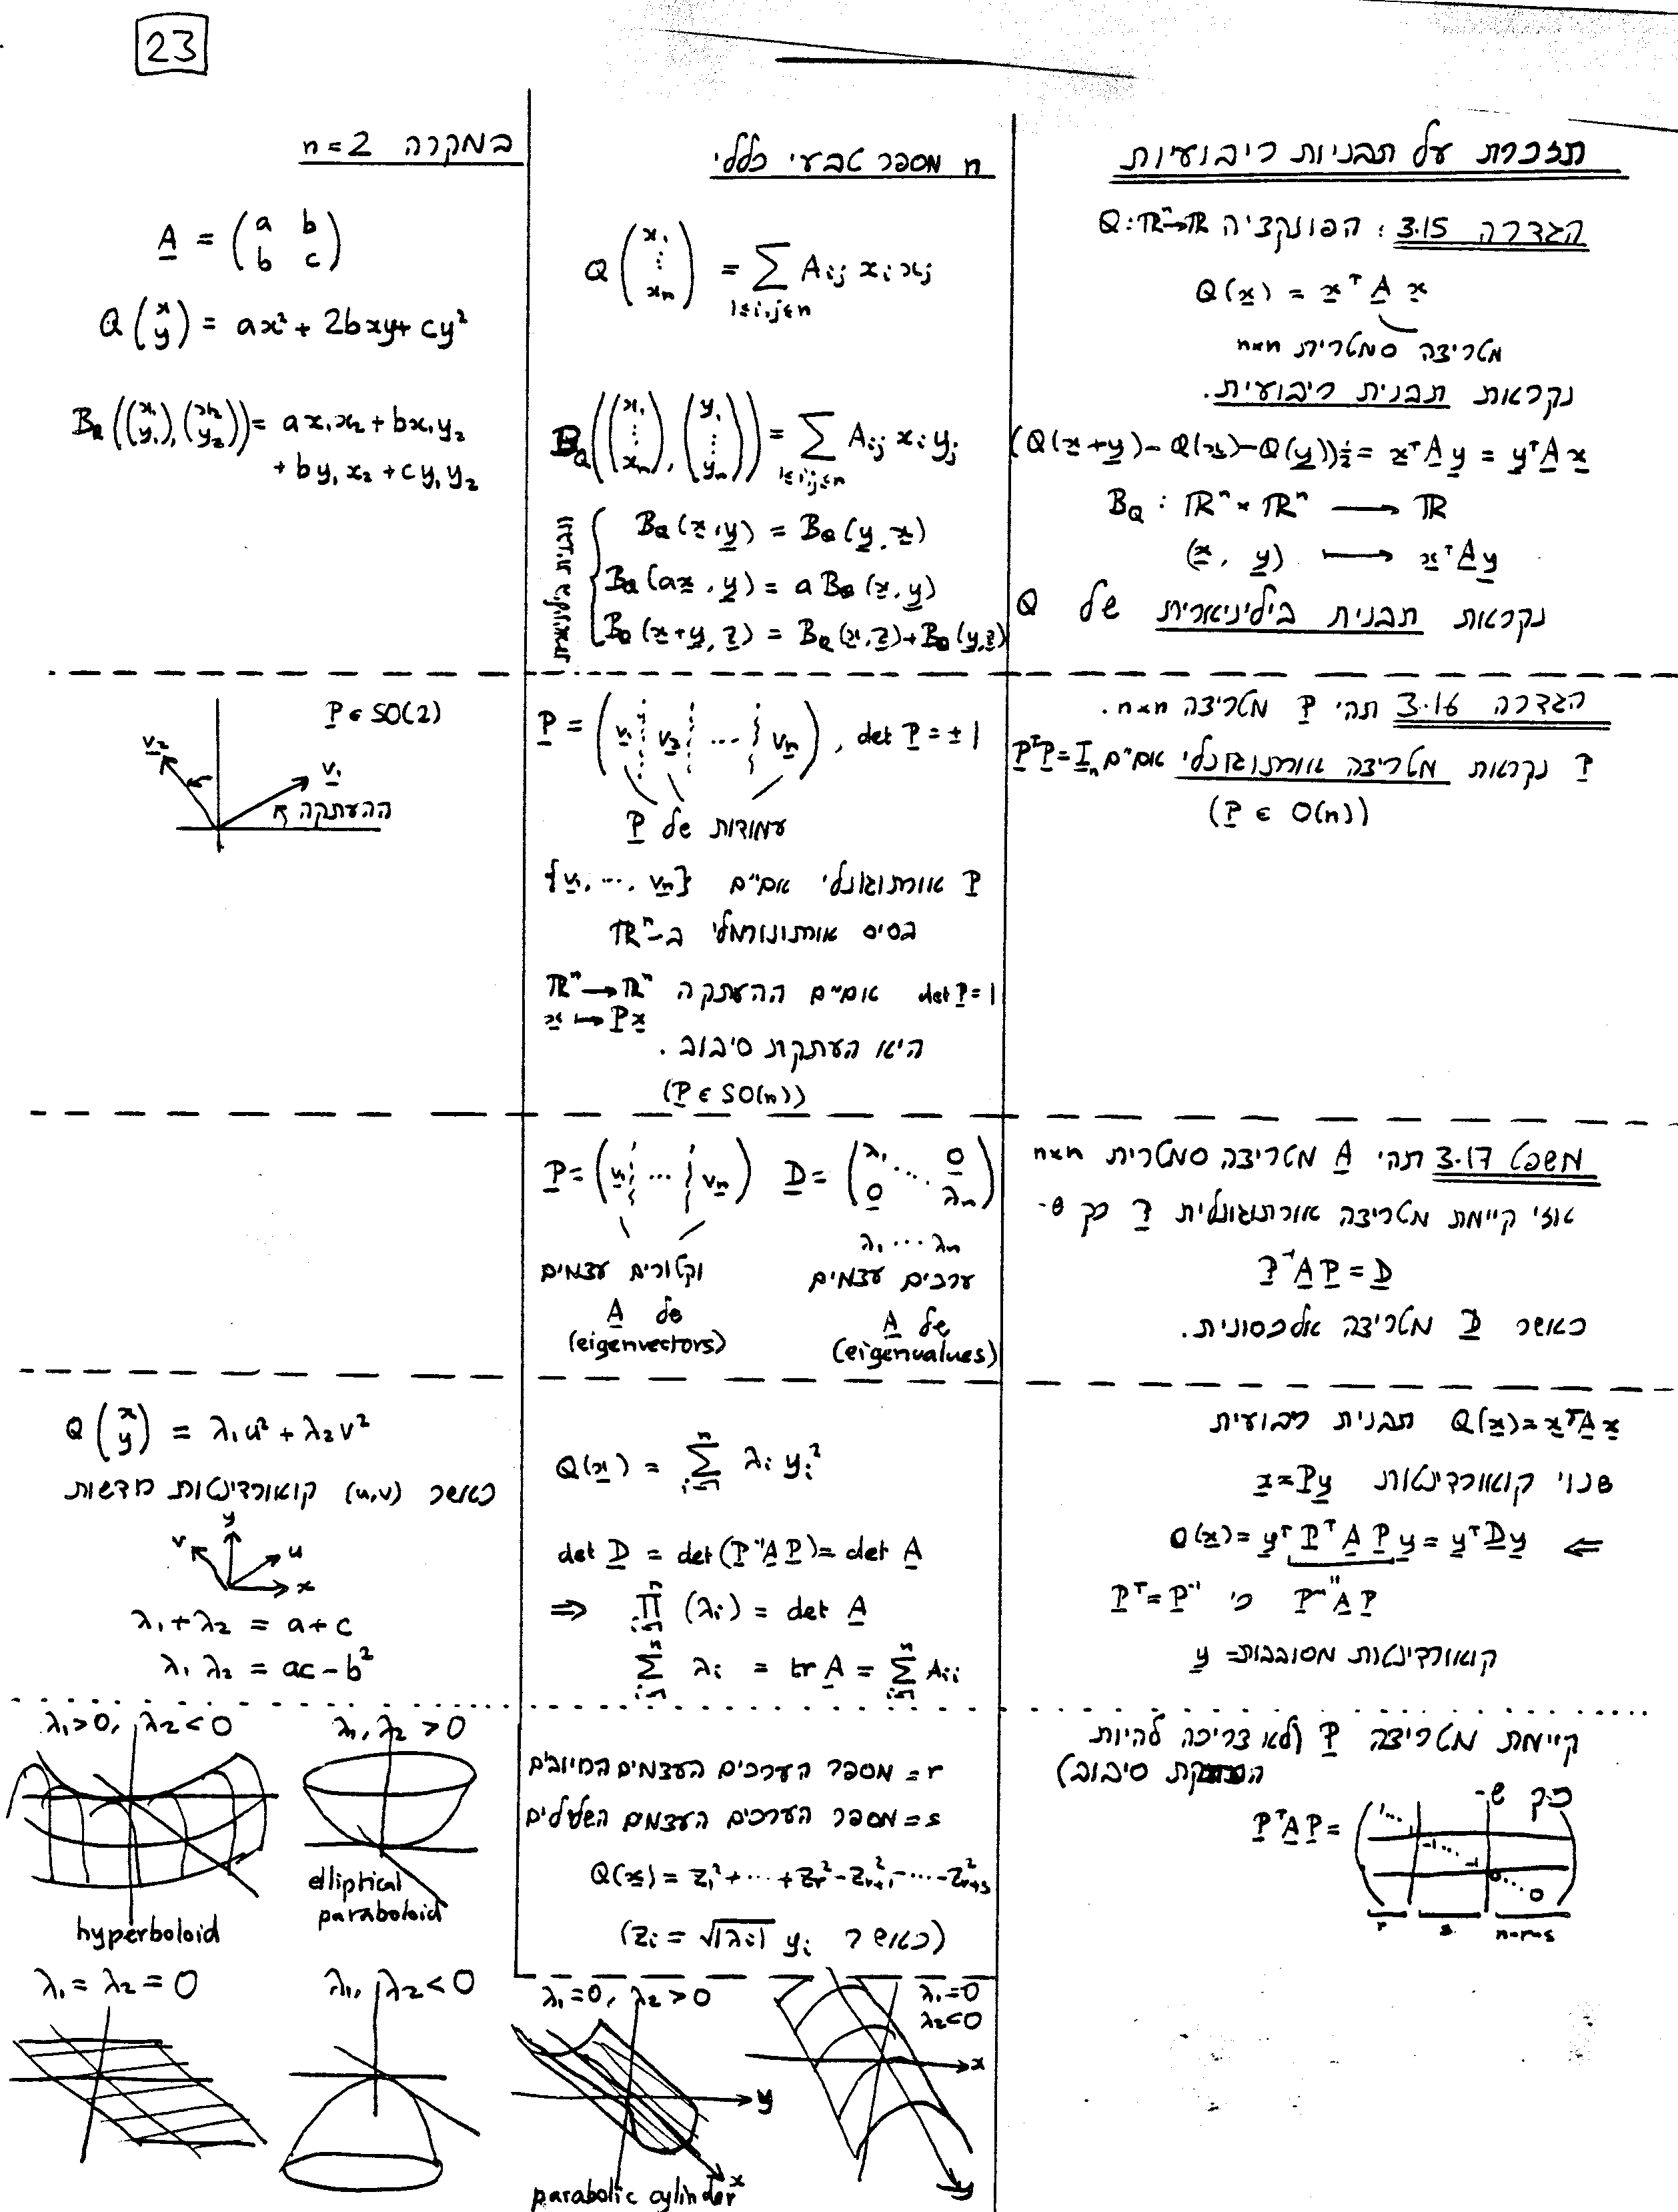 23
תזכרת על תבניות ריבועיות
הגדרה 3.15 : הפונקציה Q:ℝⁿ→ℝ
Q(x) = xᵀ A x
מטריצה סמטרית n×n
נקראת תבנית ריבועית.
(Q(x+y)-Q(x)-Q(y))½ = xᵀAy = yᵀAx
B_Q : ℝⁿ × ℝⁿ ⟶ ℝ
(x, y) ⟼ xᵀAy
נקראת תבנית בילינארית של Q
n מספר טבעי כללי
Q(x₁ ⋮ xₙ) = ∑_{1≤i,j≤n} Aᵢⱼ xᵢ xⱼ
B_Q((x₁ ⋮ xₙ), (y₁ ⋮ yₙ)) = ∑_{1≤i,j≤n} Aᵢⱼ xᵢ yⱼ
B_Q(x,y) = B_Q(y,x)
B_Q(ax,y) = a B_Q(x,y)
B_Q(x+y,z) = B_Q(x,z)+B_Q(y,z)
במקרה n=2
A = (a b
b c)
Q(x y) = ax² + 2bxy + cy²
B_Q((x₁ y₁),(x₂ y₂)) = ax₁x₂ + bx₁y₂
+ by₁x₂ + cy₁y₂
הגדרה 3.16 תהי P מטריצה n×n.
P נקראת מטריצה אורתוגונלי אם"ם PᵀP=Iₙ
(P ∈ O(n))
P = (v₁ ⋮ v₂ ⋮ ⋯ ⋮ vₙ), det P = ±1
עמודות של P
P אורתוגונלי אם"ם {v₁, ⋯, vₙ}
בסיס אורתונורמלי ב-ℝⁿ
det P=1 אם"ם ההעתקה ℝⁿ→ℝⁿ
x ↦ Px
היא העתקת סיבוב.
(P ∈ SO(n))
P ∈ SO(2)
v₂
v₁
ההעתקה
משפט 3.17 תהי A מטריצה סמטרית n×n
אזי קיימת מטריצה אורתוגונלית P כך ש-
P⁻¹AP = D
כאשר D מטריצה אלכסונית.
P = (v₁ ⋮ ⋯ ⋮ vₙ) D = (λ₁ ⋯ 0
0 λₙ)
λ₁ ⋯ λₙ
וקטורים עצמים
של A
(eigenvectors)
ערכים עצמים
של A
(eigenvalues)
Q(x)=xᵀAx תבנית ריבועית
שנוי קואורדינטות x=Py
⇐ Q(x) = yᵀPᵀAPy = yᵀDy
P⁻¹AP כי Pᵀ=P⁻¹
קואורדינטות מסובבות = y
Q(x) = ∑ᵢ₌₁ⁿ λᵢ yᵢ²
det D = det(P⁻¹AP) = det A
⇒ ∏ᵢ₌₁ⁿ (λᵢ) = det A
∑ᵢ₌₁ⁿ λᵢ = tr A = ∑ᵢ₌₁ⁿ Aᵢᵢ
Q(x y) = λ₁u² + λ₂v²
כאשר (u,v) קואורדינטות חדשות
v y u x
λ₁+λ₂ = a+c
λ₁λ₂ = ac-b²
קיימת מטריצה P (לא צריכה להיות
העתקת סיבוב)
כך ש-
PᵀAP = (1 ⋱ 1 -1 ⋱ -1 0 ⋱ 0)
r s n-r-s
r = מספר הערכים העצמים החיובים
s = מספר הערכים העצמים השלילים
Q(x) = z₁²+⋯+zᵣ²-zᵣ₊₁²-⋯-zᵣ₊ₛ²
(כאשר zᵢ = √|λᵢ| yᵢ)
λ₁>0, λ₂<0
hyperboloid
λ₁, λ₂ >0
elliptical
paraboloid
λ₁ = λ₂ = 0
λ₁, λ₂ <0
λ₁=0, λ₂>0
y
x
parabolic cylinder
λ₁=0
λ₂<0
x
y